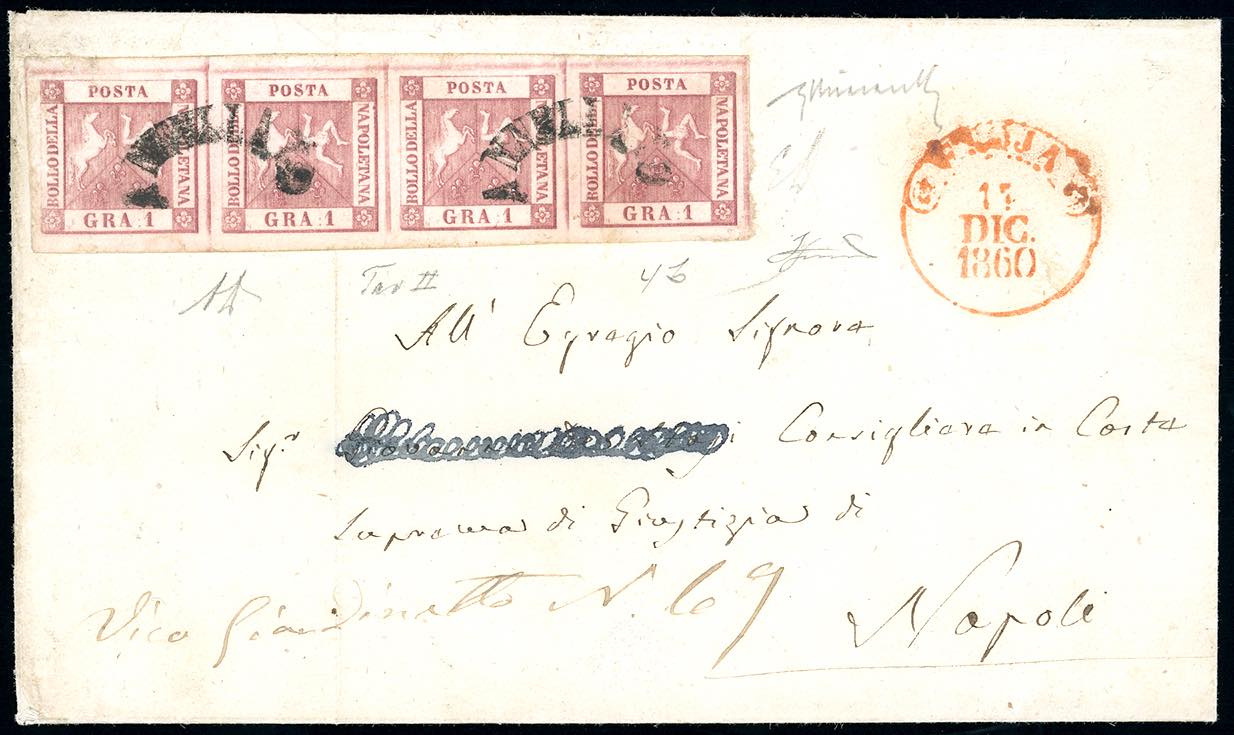 POSTA POSTA POSTA POSTA
BOLLO DELLA NAPOLETANA BOLLO DELLA NAPOLETANA BOLLO DELLA NAPOLETANA BOLLO DELLA NAPOLETANA
GRA: 1 GRA: 1 GRA: 1 GRA: 1
ANNULLATO ANNULLATO
JA
DIC.
1860
Tav II 4b
All' Egregio Signore
Sig.r Consigliere in Corte
Suprema di Giustizia di
Napoli
Vico Giardinetto N. 69